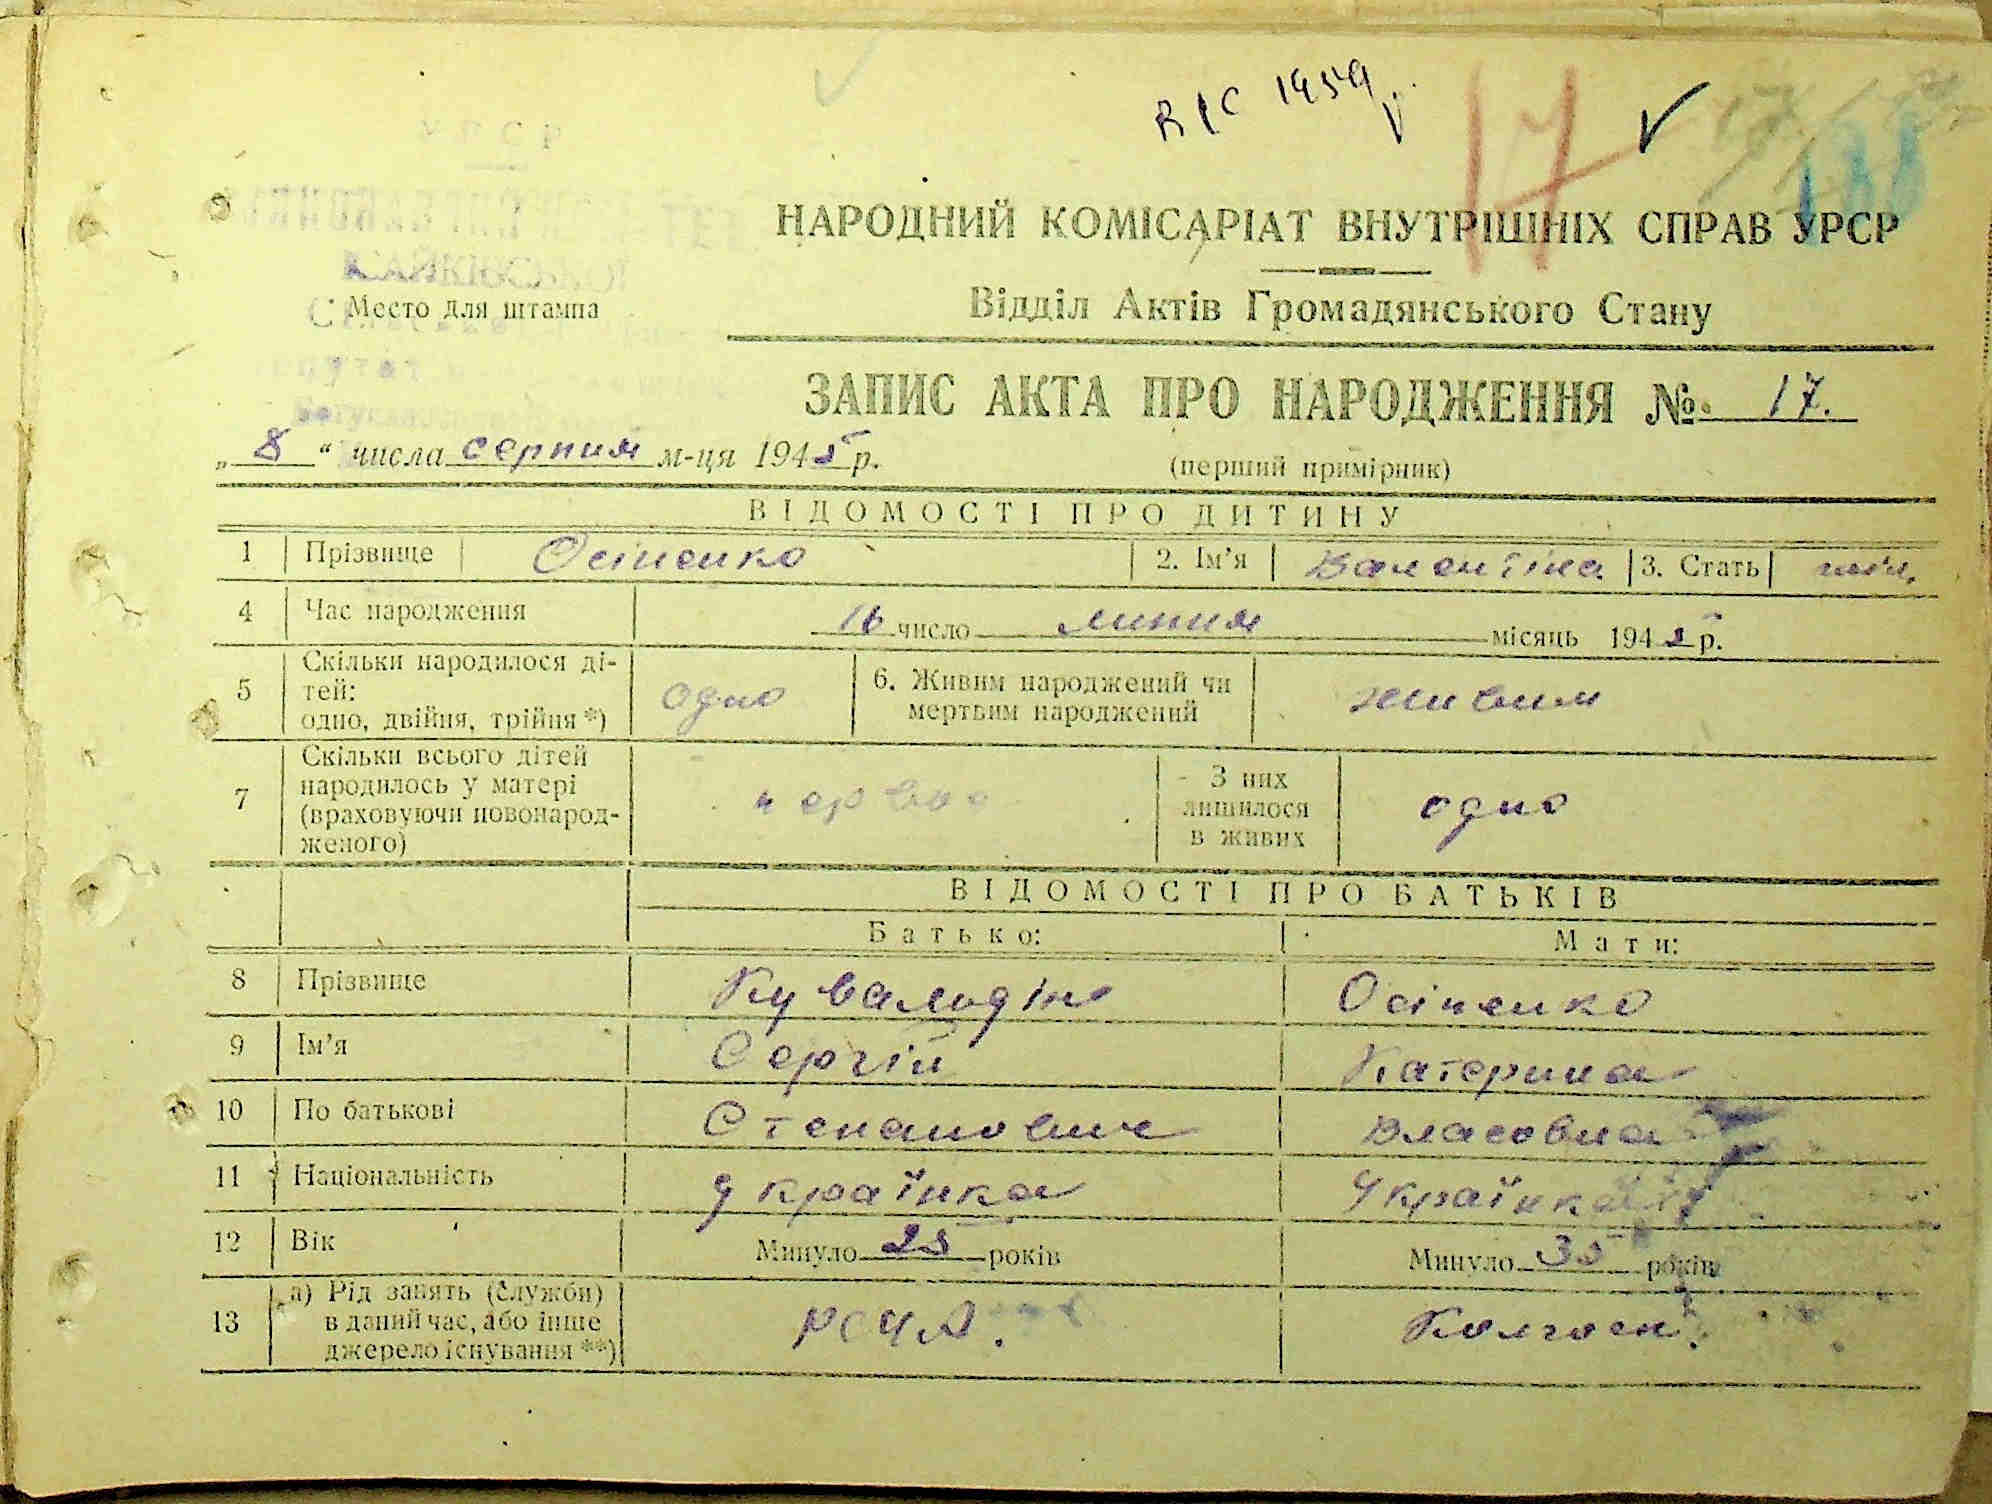 ВІС 1959
17
УРСР
НАРОДНИЙ КОМІСАРІАТ ВНУТРІШНІХ СПРАВ УРСР
Место для штампа
Відділ Актів Громадянського Стану
ЗАПИС АКТА ПРО НАРОДЖЕННЯ №. 17.
„8“ числа серпня м-ця 1945 р.
(перший примірник)
ВІДОМОСТІ ПРО ДИТИНУ
1 Прізвище Осіпенко 2. Ім'я Валентіна 3. Стать
4 Час народження 16 число липня місяць 1945 р.
5 Скільки народилося ді-
тей:
одно, двійня, трійня *)
одно
6. Живим народжений чи
мертвим народжений
живим
7 Скільки всього дітей
народилось у матері
(враховуючи новонарод-
женого)
перво
З них
лишилося
в живих
одно
ВІДОМОСТІ ПРО БАТЬКІВ
Батько: Мати:
8 Прізвище Кувалдін Осіпенко
9 Ім'я Сергій Катерина
10 По батькові Степанович Власовна
11 Національність Українка Українка
12 Вік Минуло 25 років Минуло 35 років
13 а) Рід занять (служби)
в даний час, або інше
джерело існування **)
РСЧА. Колгосп.